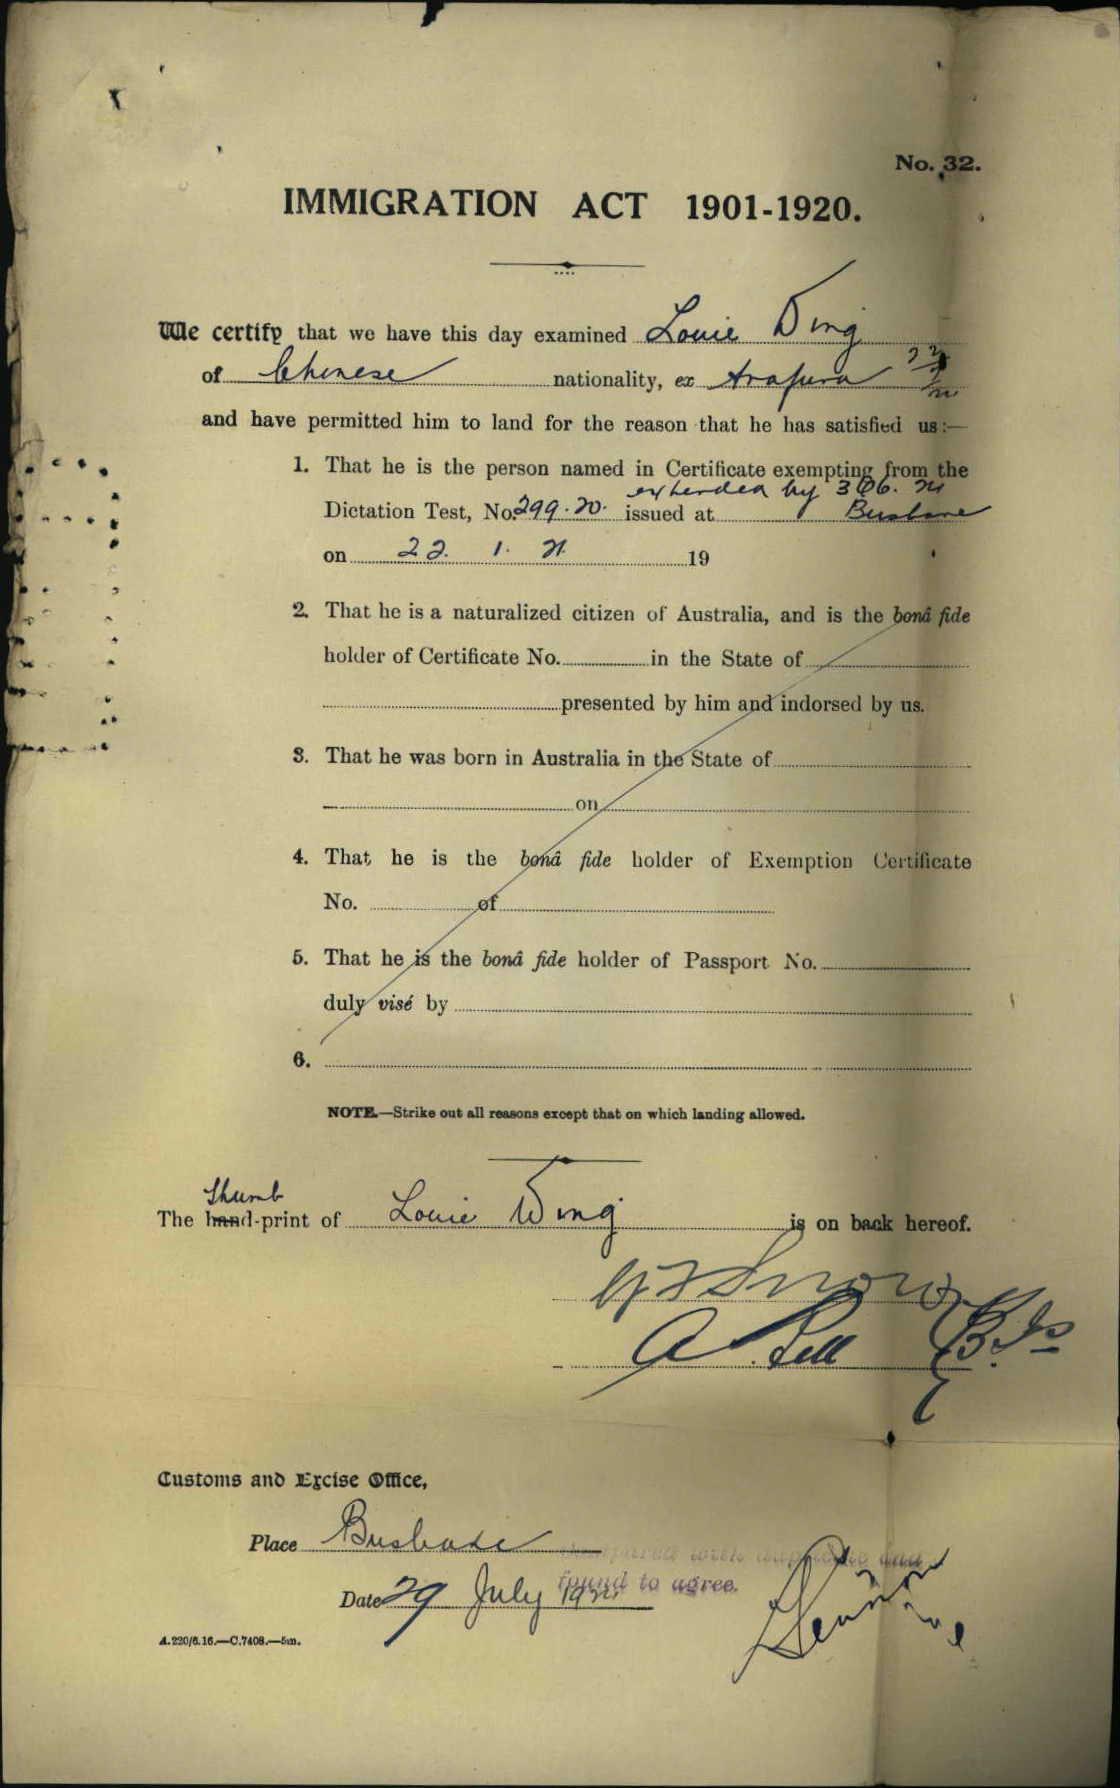 No. 32.
IMMIGRATION ACT 1901-1920.
We certify that we have this day examined Louie Wing
of Chinese nationality, ex Arafura
and have permitted him to land for the reason that he has satisfied us:—
1. That he is the person named in Certificate exempting from the
extended by 306.
Dictation Test, No. 299. issued at Brisbane
on 22. 1. 19
2. That he is a naturalized citizen of Australia, and is the bonâ fide
holder of Certificate No. in the State of
presented by him and indorsed by us.
3. That he was born in Australia in the State of
on
4. That he is the bonâ fide holder of Exemption Certificate
No. of
5. That he is the bonâ fide holder of Passport No.
duly visé by
6.
NOTE.—Strike out all reasons except that on which landing allowed.
Thumb
The hand-print of Louie Wing is on back hereof.
Snow
A Bell
Customs and Excise Office,
Place Brisbane
found to agree.
Date 29 July
A.220/6.16.—C.7408.—5m.